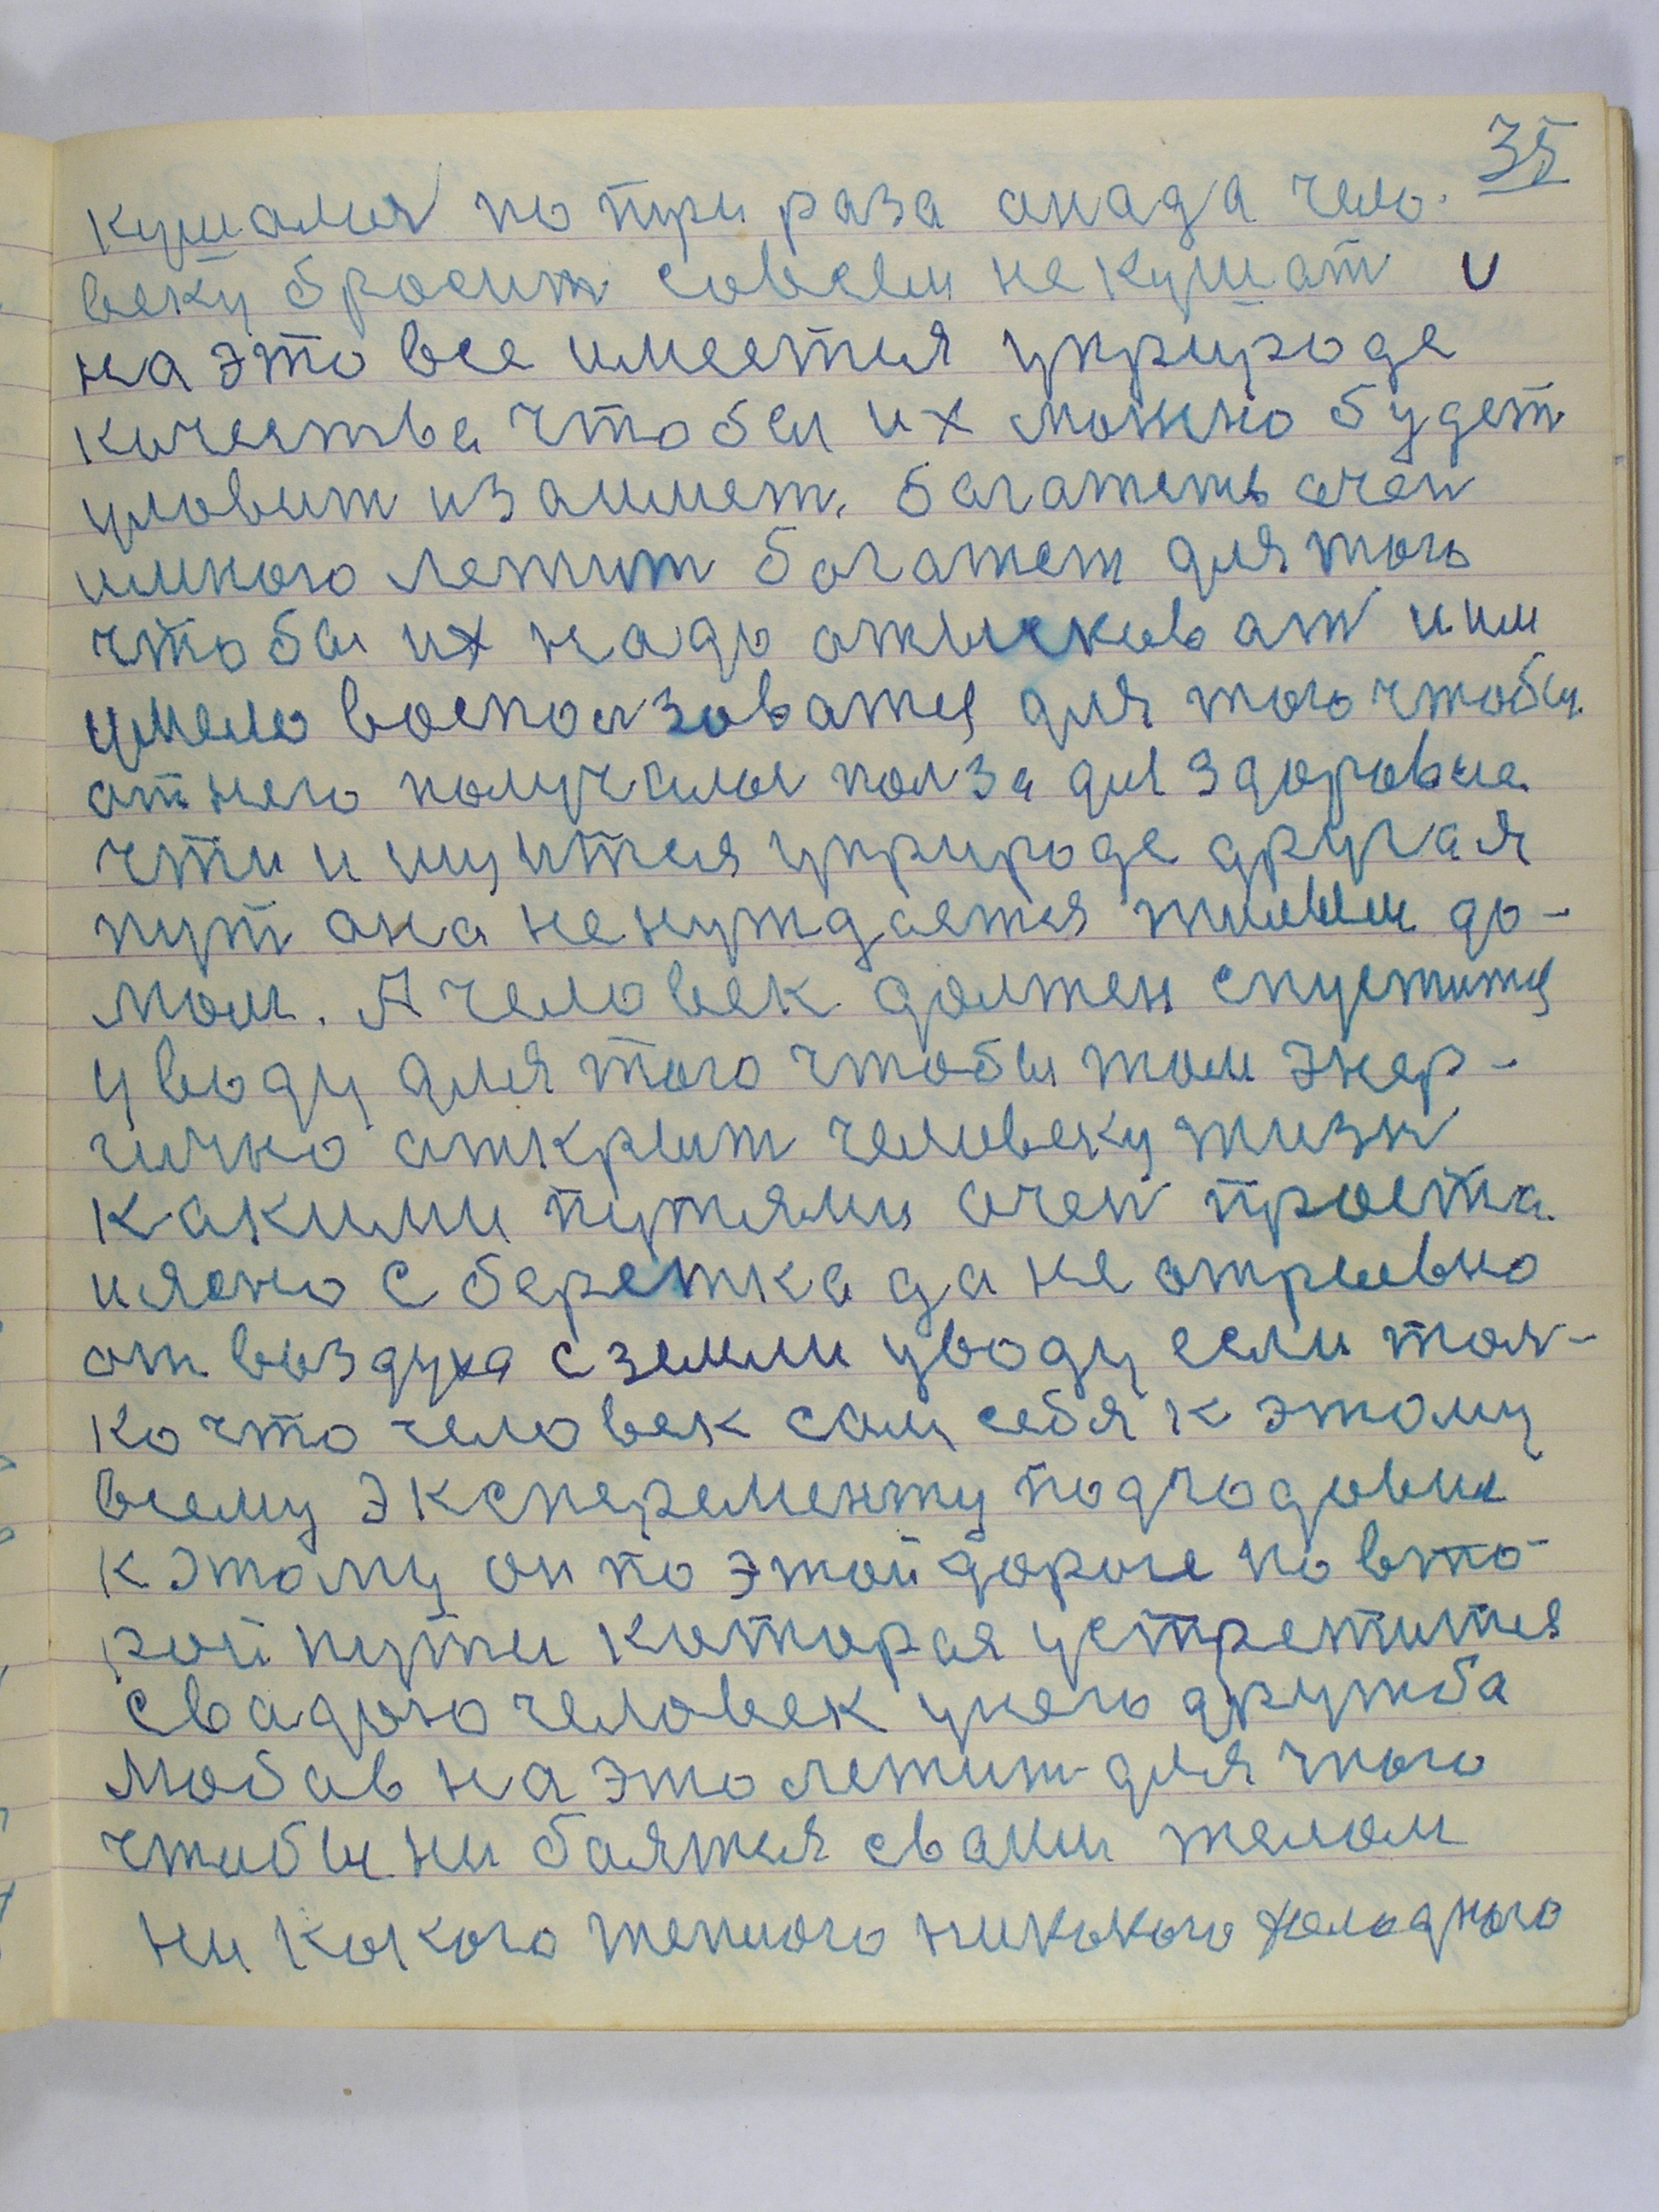 35
кушался по три раза анада чело-
веку бросит совсем не кушат и
на это все имеется уприроде
качества чтобы их можно будет
уловит изаимет. багатеть очен
имного летит богатет для того
чтобы их надо отыскиват иим
умело воспользоватся для того чтобы
от него получилы полза для здоровие
чти и ищится уприроде другая
пут она не нуждается жилым до-
мом. А человек должен спустится
уводу для того чтобы там энер-
гично открыт человеку жизн
какими путями очен проста
иясно с бережка да не отрывно
от воздуха с земли уводу если тол-
ко что человек сам себя к этому
всему эксперементу подгодовил
к этому он по этой дороге по вто-
рой пути которая устретится
свадою человек унего дружба
любов на это летит для того
чтобы ни боятся сваим телом
ни какого теплого никокого холодного